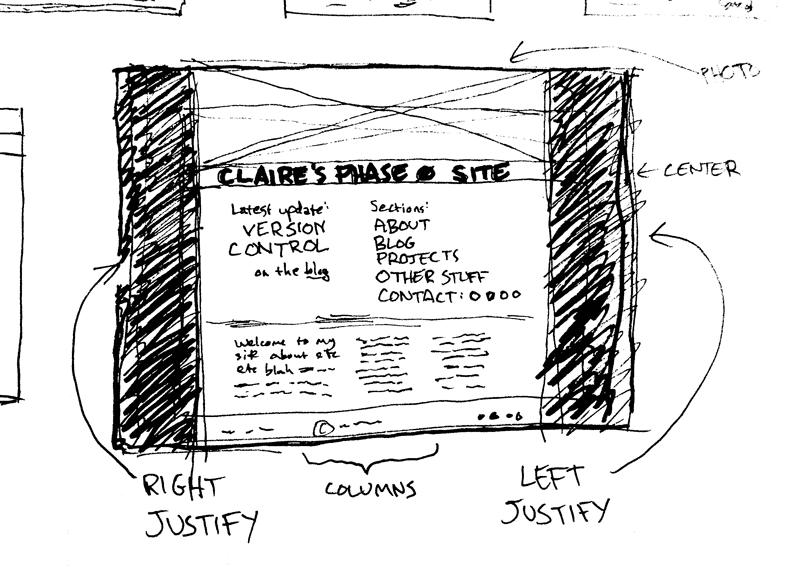 PHOTO
CLAIRE'S PHASE Ø SITE
← CENTER
Latest update:
VERSION
CONTROL
on the blog
Sections:
ABOUT
BLOG
PROJECTS
OTHER STUFF
CONTACT: O O O O
Welcome to my
site about etc
etc blah
©
RIGHT
JUSTIFY
COLUMNS
LEFT
JUSTIFY